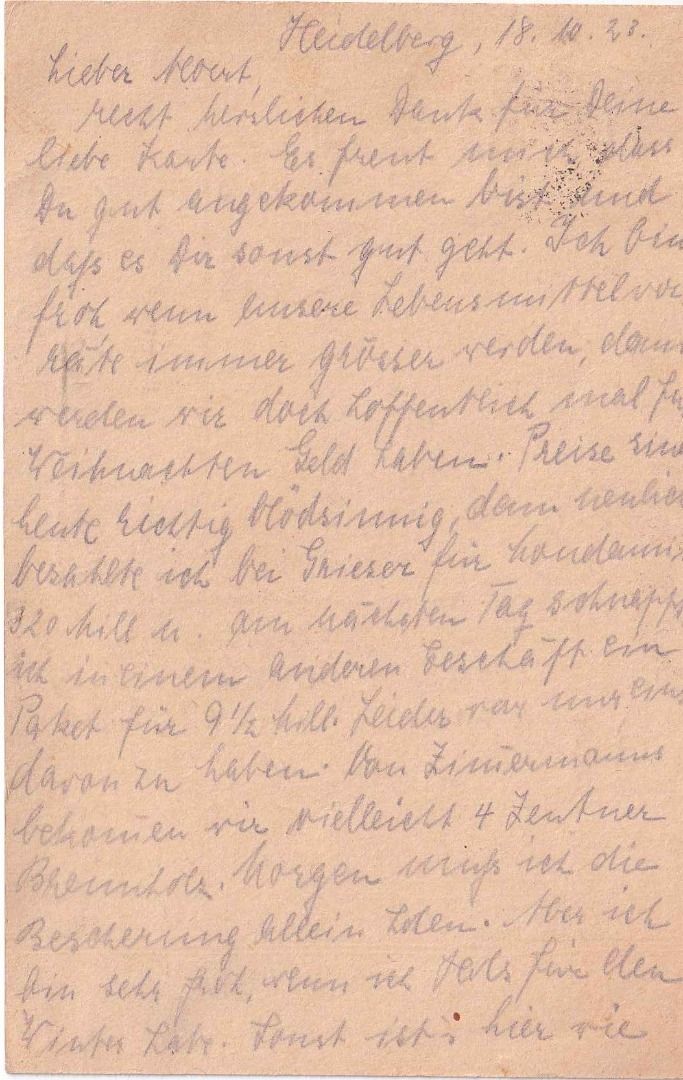 Heidelberg, 18. 10. 23.
Lieber Albert,
recht herzlichen Dank für Deine
liebe Karte. Es freut mich, dass
Du gut angekommen bist und
daß es Dir sonst gut geht. Ich bin
froh, wenn unsere Lebensmittelvor
räte immer grösser werden, dann
werden wir doch hoffentlich mal für
Weihnachten Geld haben. Preise sind
heute richtig blödsinnig, denn neulich
bezahlte ich bei Grieser für Mondamin
320 Mill u. am nächsten Tag schnapp
ich in einem anderen Geschäft ein
Paket für 9 1/2 Mill. Leider war nur eins
davon zu haben. Von Zimermanns
bekomen wir vielleicht 4 Zentner
Brennholz. Morgen muß ich die
Bescherung allein holen. Aber ich
bin sehr froh, wenn ich Holz für den
Winter habe. Sonst ist's hier wie